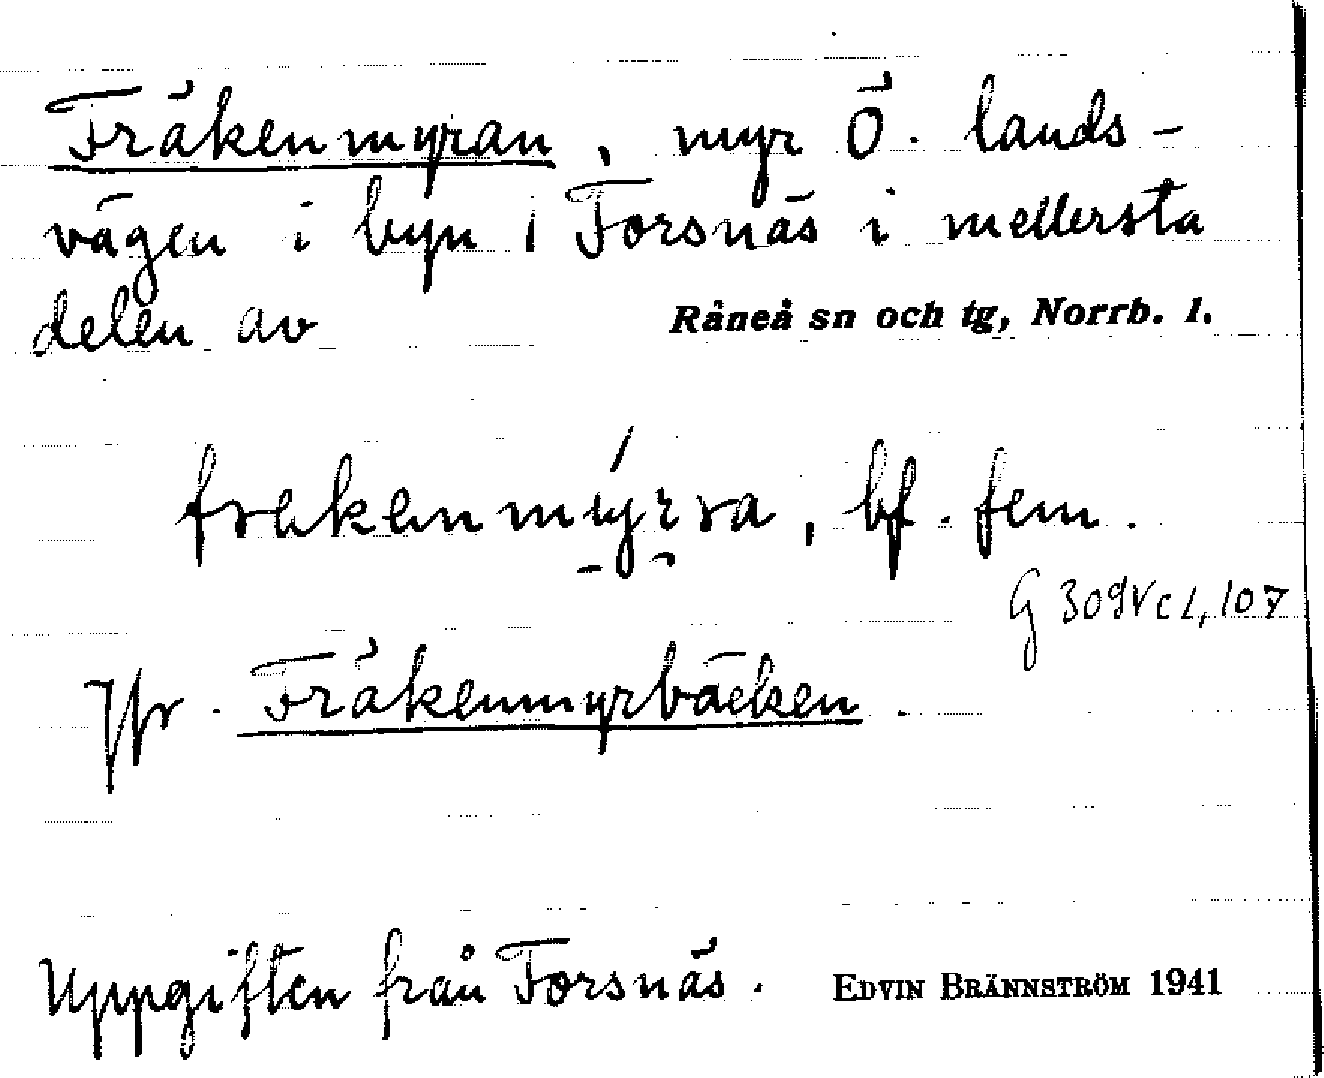 Fräkenmyran, myr Ö. lands-
vägen i byn i Forsnäs i mellersta
delen av Råneå sn och tg, Norrb. l.
frakenmýrra, bf. fem.
G 309 V c 1, 107
Jfr. Fräkenmyrbäcken.
Uppgiften från Forsnäs. EDVIN BRÄNNSTRÖM 1941